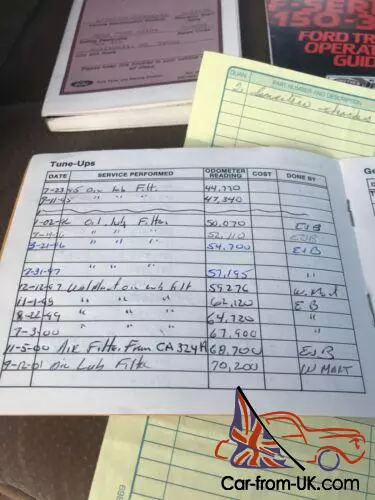 F-SERIES
150-3
FORD TR
OPERAT
GUID
QUAN.
PART NUMBER AND DESCRIPTION
2
Tune-Ups
DATE SERVICE PERFORMED ODOMETER READING COST DONE BY
7-23-95 Oil Lub Filt. 44,770
9-11-95 " " " 47,340
-02-96 Oil, Lub, Filter 50,070 EVB
7-14-96 " " " 52,110 EVB
8-21-96 " " " 54,700 EVB
7-31-97 " " " 57,195 "
12-12-97 Walmart Oil Lub Filt 59276 W. Mart
11-1-98 " " " 62,120 EB
8-22-99 " " " 64,720 "
7-3-00 " " " 67,900
11-5-00 Air Filter, Fram CA324A 68,700 EVB
9-12-01 Oil Lub Filter 70,200 W MART
Ge
DA
Car-from-UK.com